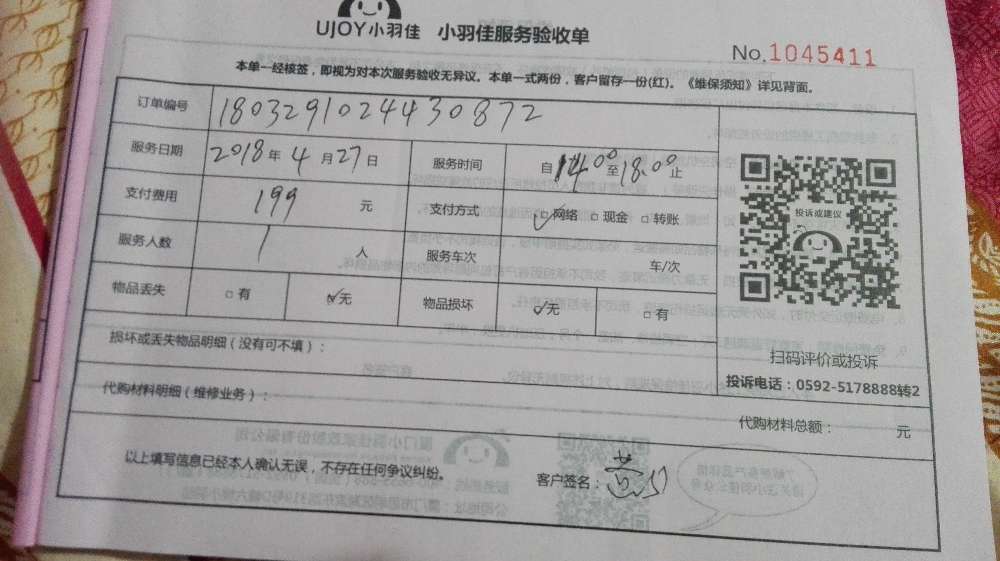 UJOY小羽佳 小羽佳服务验收单
No.1045411
本单一经核签，即视为对本次服务验收无异议。本单一式两份，客户留存一份(红)。《维保须知》详见背面。
订单编号 1803291024430872
服务日期 2018年4月27日 服务时间 自14:00至18:00止
支付费用 199 元 支付方式 ☑网络 □现金 □转账
服务人数 1 人 服务车次 车/次
物品丢失 □有 ☑无 物品损坏 ☑无 □有
投诉或建议
扫码评价或投诉
投诉电话：0592-5178888转2
损坏或丢失物品明细（没有可不填）：
代购材料明细（维修业务）：
代购材料总额： 元
以上填写信息已经本人确认无误，不存在任何争议纠纷。
客户签名：